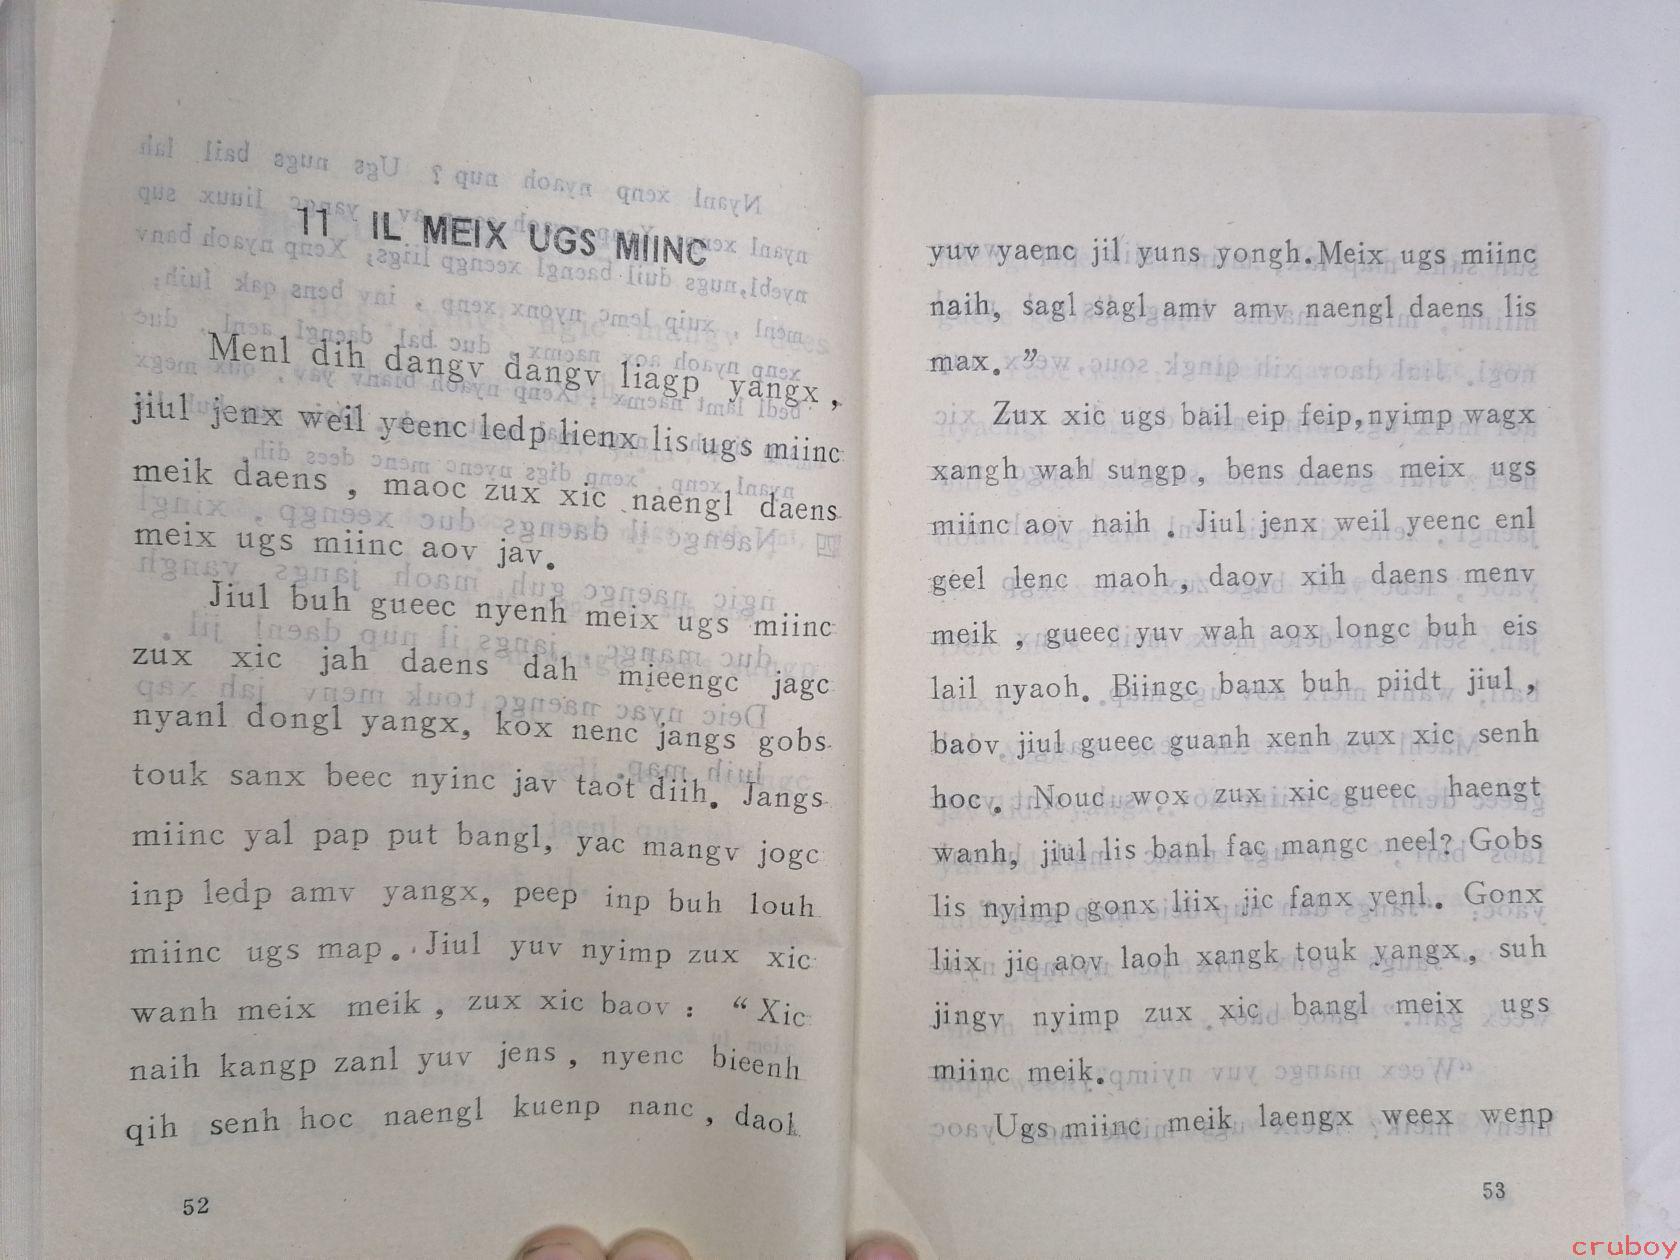 11 IL MEIX UGS MIINC
Menl dih dangv dangv liagp yangx,
jiul jenx weil yeenc ledp lienx lis ugs miinc
meik daens, maoc zux xic naengl daens
meix ugs miinc aov jav.
Jiul buh gueec nyenh meix ugs miinc
zux xic jah daens dah mieengc jagc
nyanl dongl yangx, kox nenc jangs gobs
touk sanx beec nyinc jav taot diih. Jangs
miinc yal pap put bangl, yac mangv jogc
inp ledp amv yangx, peep inp buh louh
miinc ugs map. Jiul yuv nyimp zux xic
wanh meix meik, zux xic baov: “Xic
naih kangp zanl yuv jens, nyenc bieenh
qih senh hoc naengl kuenp nanc, daol
52
yuv yaenc jil yuns yongh. Meix ugs miinc
naih, sagl sagl amv amv naengl daens lis
max.”
Zux xic ugs bail eip feip, nyimp wagx
xangh wah sungp, bens daens meix ugs
miinc aov naih. Jiul jenx weil yeenc enl
geel lenc maoh, daov xih daens menv
meik, gueec yuv wah aox longc buh eis
lail nyaoh. Biingc banx buh piidt jiul,
baov jiul gueec guanh xenh zux xic senh
hoc. Nouc wox zux xic gueec haengt
wanh, jiul lis banl fac mangc neel? Gobs
lis nyimp gonx liix jic fanx yenl. Gonx
liix jic aov laoh xangk touk yangx, suh
jingv nyimp zux xic bangl meix ugs
miinc meik.
Ugs miinc meik laengx weex wenp
53
cruboy